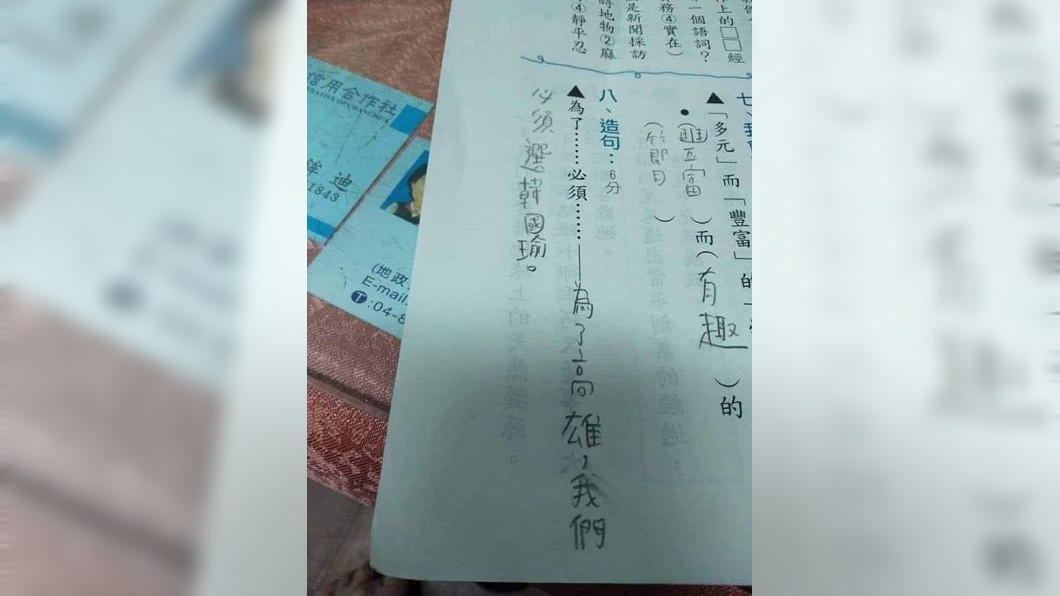 上的□□經
一個語詞？
務④實在）
是新聞採訪
時地物②麻
④靜平忍
七、
▲「多元」而「豐富」的
●（豐富）而（有趣）的
（節目）
八、造句：6分
▲為了……必須……——為了高雄，我們
必須選韓國瑜。
信用合作社
迪
1843
(地政
E-mail
T:04-8